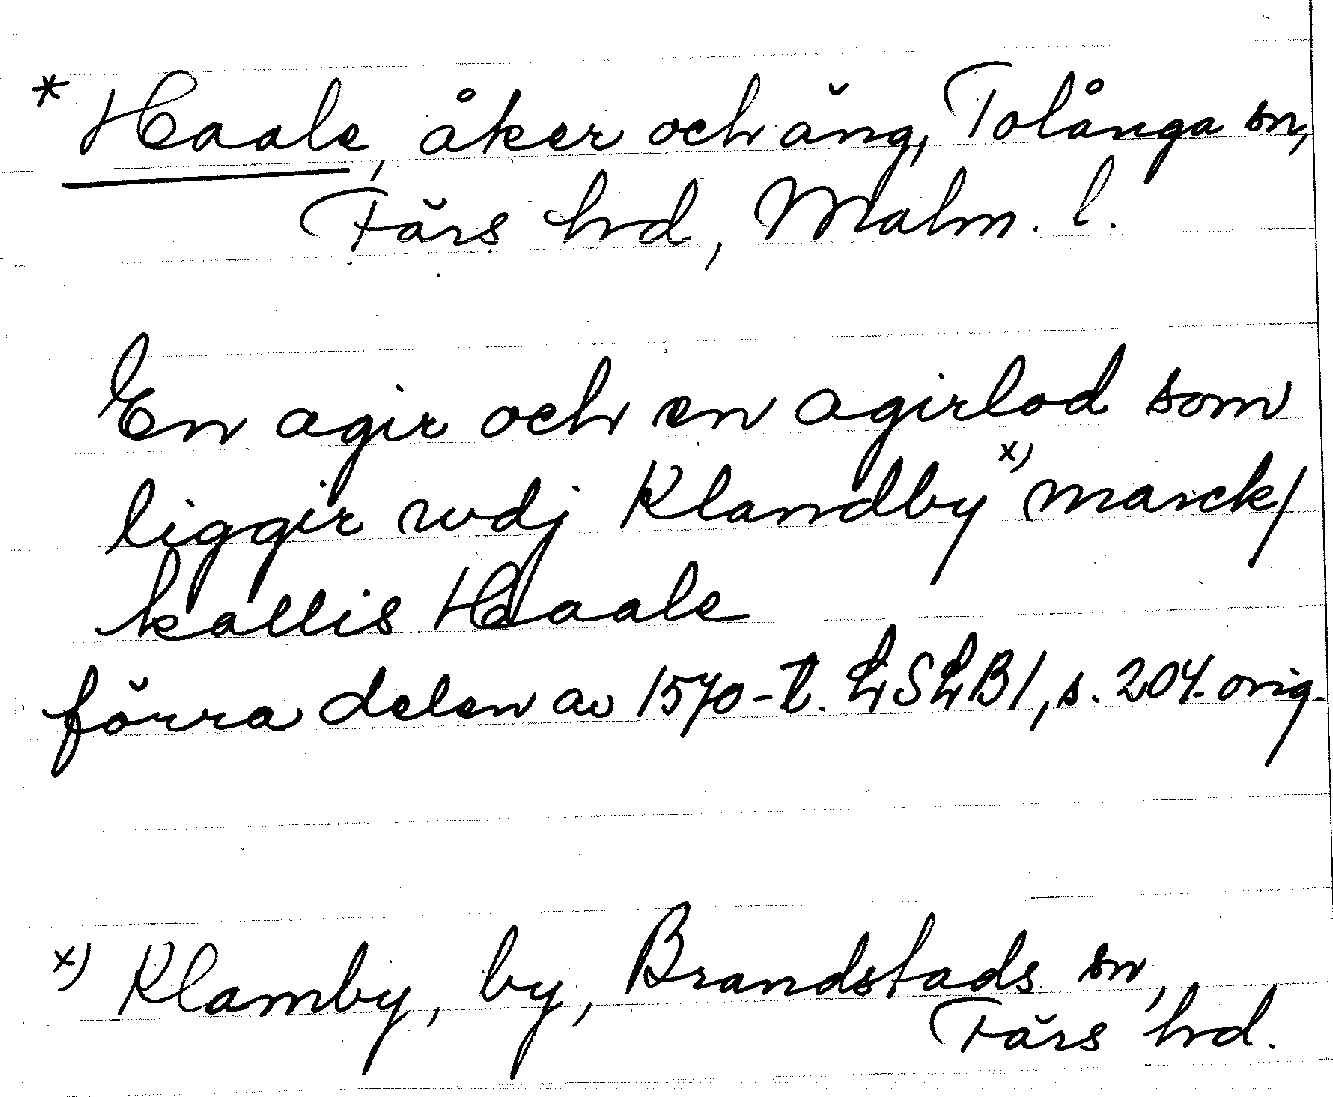 * Haale, åker och äng, Tolånga sn,
Färs hrd, Malm. l.
En agir och en agirlod som
liggir wdj Klandby x) marck/
kallis Haale
förra delen av 1570-t. LSLB1, s. 204. orig.
x) Klamby, by, Brandstads sn,
Färs hrd.